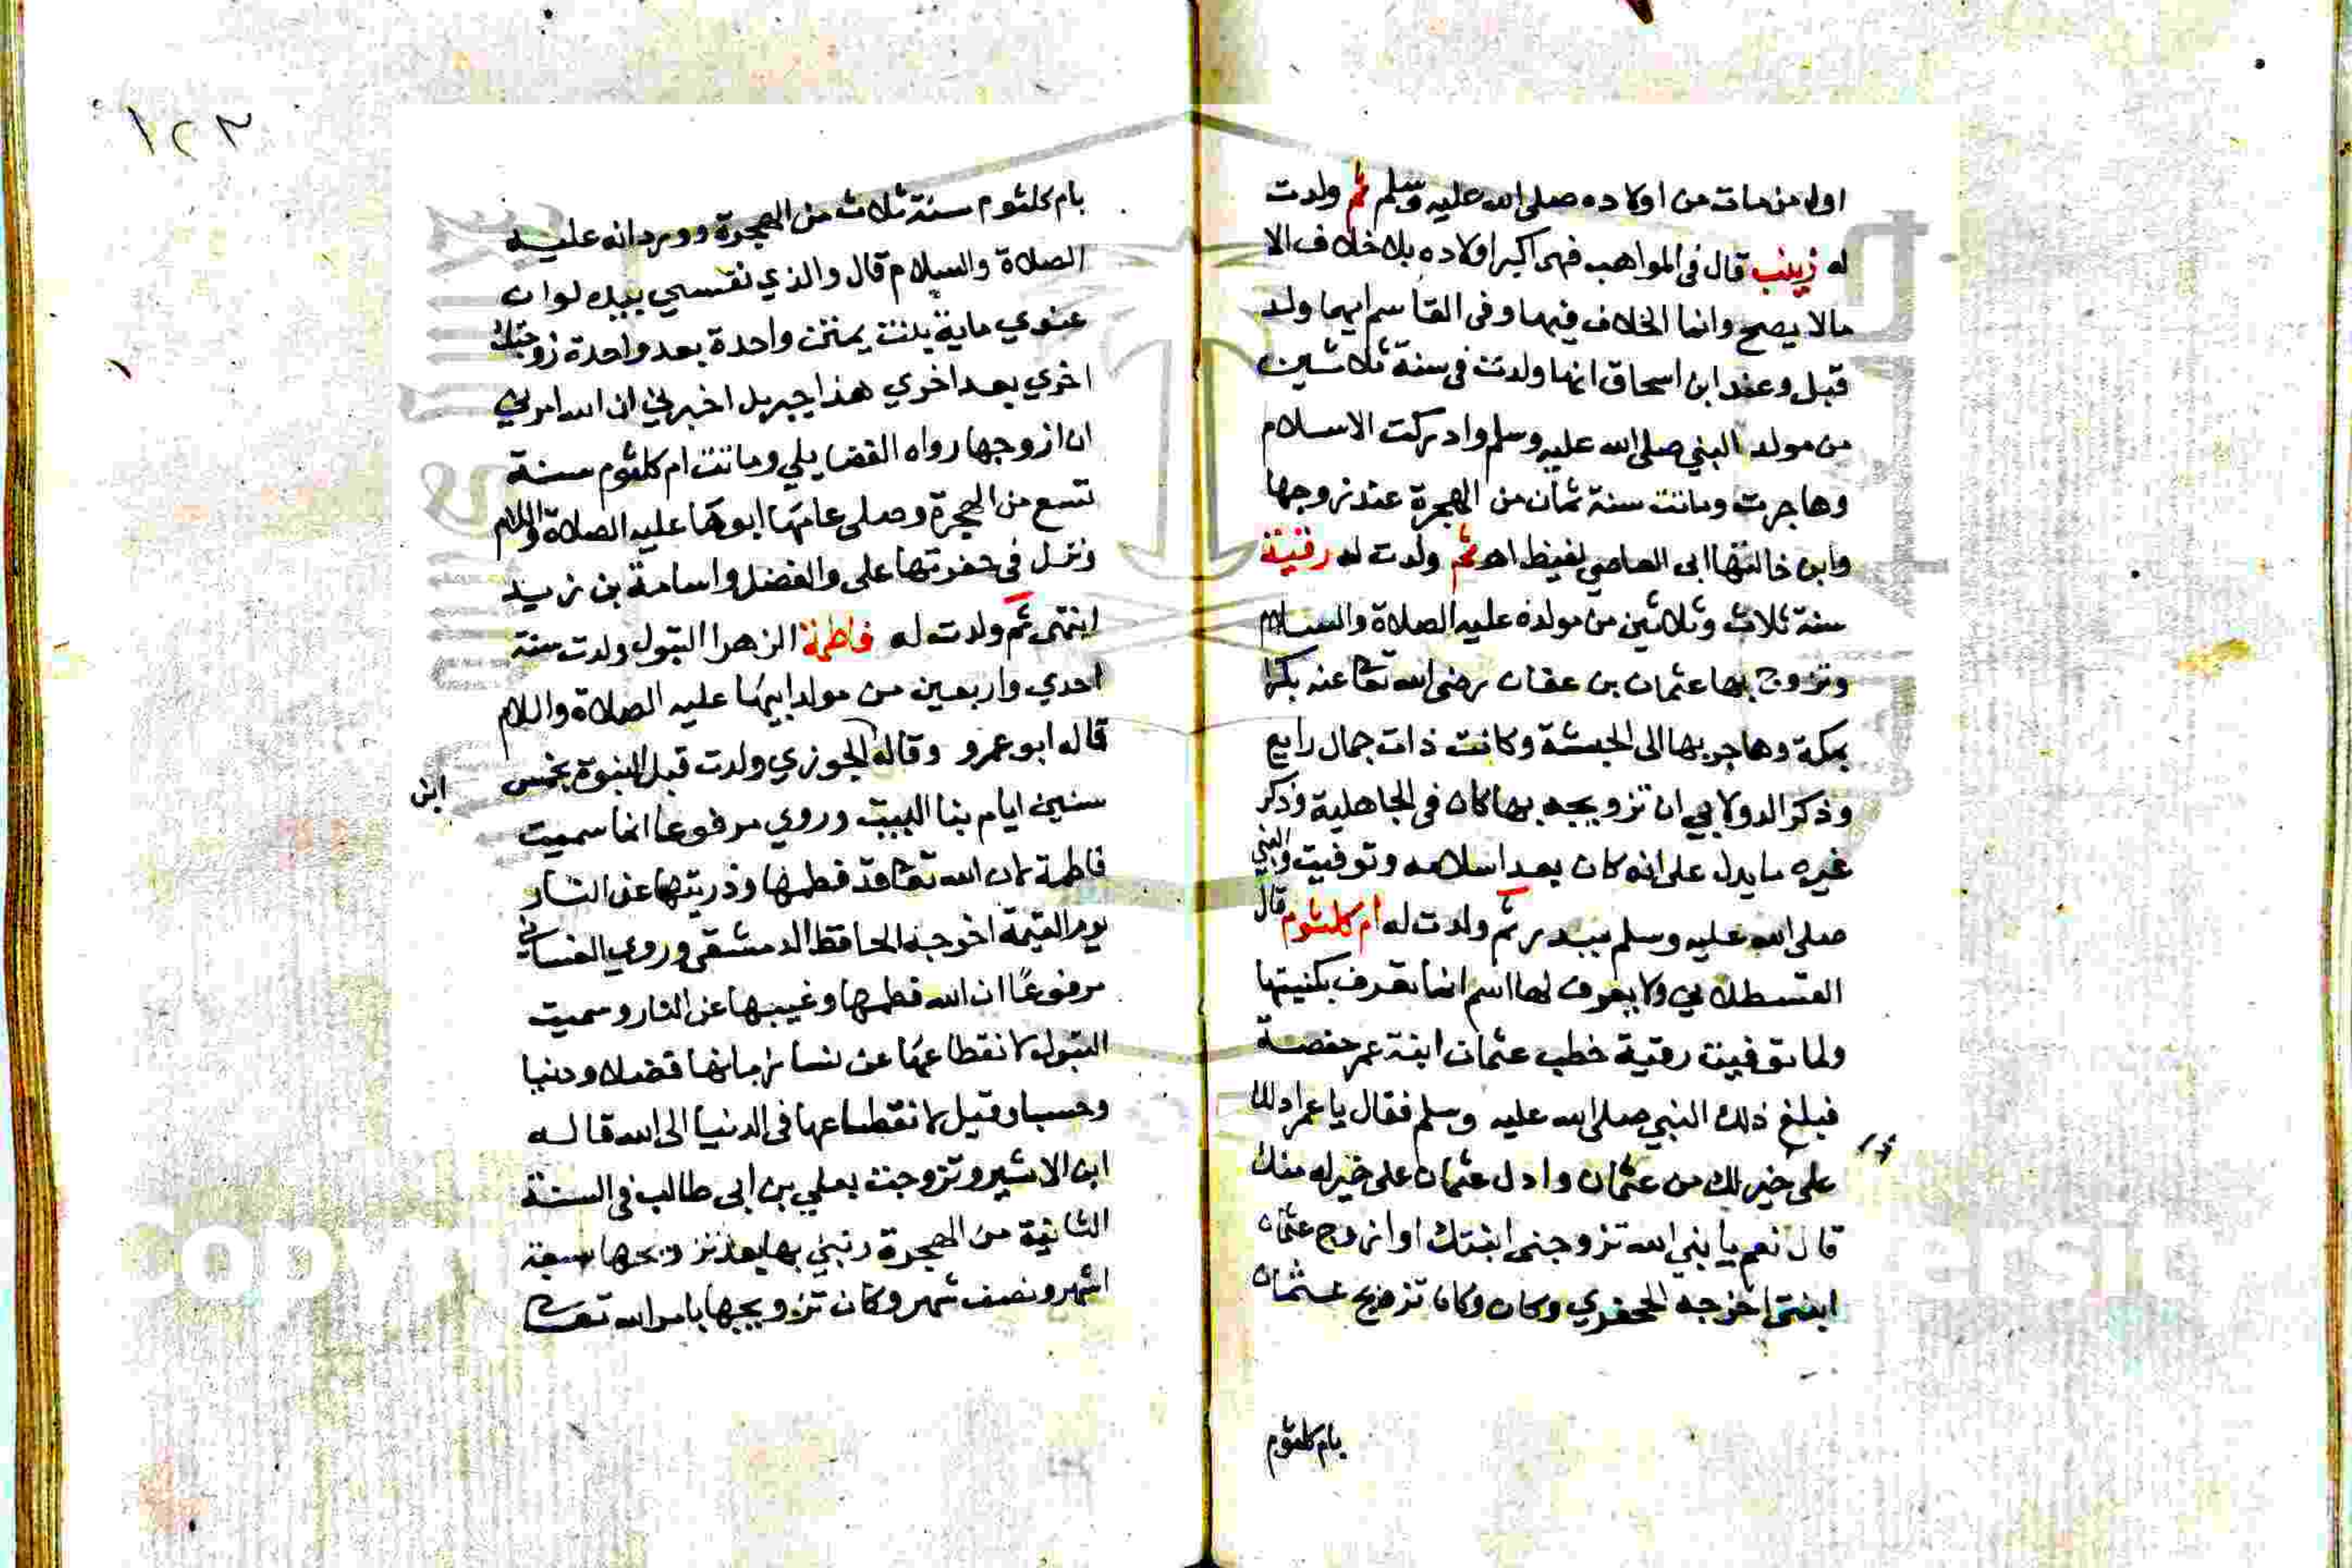 اول من مات من اولاده صلى الله عليه وسلم ثم ولدت
له زينب قال في المواهب فهي اكبر اولاده بلا خلاف الا
مالا يصح وانما الخلاف فيها وفي القاسم ايهما ولد
قبل وعند ابن اسحاق انها ولدت في سنة ثلاثين
من مولد النبي صلى الله عليه وسلم وادركت الاسلام
وهاجرت وماتت سنة ثمان من الهجرة عند زوجها
وابن خالتها ابى العاصي لقيط اهـ ثم ولدت له رقية
سنة ثلاث وثلاثين من مولده عليه الصلاة والسلام
وتزوج بها عثمان بن عفان رضى الله تعا عنه بكرا
بمكة وهاجر بها الى الحبشة وكانت ذات جمال رايع
وذكر الدولابي ان تزويجه بها كان في الجاهلية وذكر
غيره ما يدل على انه كان بعد اسلامه وتوفيت والنبي
صلى الله عليه وسلم ببدر ثم ولدت له ام كلثوم قال
القسطلاني ولا يعرف لها اسم انما تعرف بكنيتها
ولما توفيت رقية خطب عثمان ابنة عمر حفصة
فبلغ ذلك النبي صلى الله عليه وسلم فقال يا عمر ادلك
على خير لك من عثمان وادل عثمان على خير له منك
قال نعم يا نبي الله تزوجنى ابنتك وازوج عثمان
ابنتى اخرجه الحجندي وكان وكان تزويج عثمان
بام كلثوم
١٢٣
بام كلثوم سنة ثلاث من الهجرة وورد انه عليه
الصلاة والسلام قال والذي نفسي بيده لو ان
عندي ماية بنت يمتن واحدة بعد واحدة زوجتك
اخري بعد اخري هذا جبريل اخبرني ان الله امرني
ان ازوجها رواه الفضايلي وماتت ام كلثوم سنة
تسع من الهجرة وصلى عليها ابوها عليه الصلاة والسلام
ونزل في حفرتها على والفضل واسامة بن زيد
انتهى ثم ولدت له فاطمة الزهرا البتول ولدت سنة
احدي واربعين من مولد ابيها عليه الصلاة والسلام
قاله ابو عمرو وقال الجوزي ولدت قبل النبوة بخمس
ابن
سنين ايام بنا البيت وروي مرفوعا انما سميت
فاطمة لان الله تعا قد فطمها وذريتها عن النار
يوم القيمة اخرجه الحافظ الدمشقي وروي الغساني
مرفوعًا ان الله فطمها وغيبها عن النار وسميت
البتول لانقطاعها عن نسا زمانها فضلا ودنيا
وحسبا وقيل لانقطاعها في الدنيا الى الله قاله
ابن الاثير وتزوجت بعلي بن ابى طالب في السنة
الثانية من الهجرة وبني بها بعد تزويجها سبعة
اشهر ونصف شهر وكان تزويجها بامر الله تعا